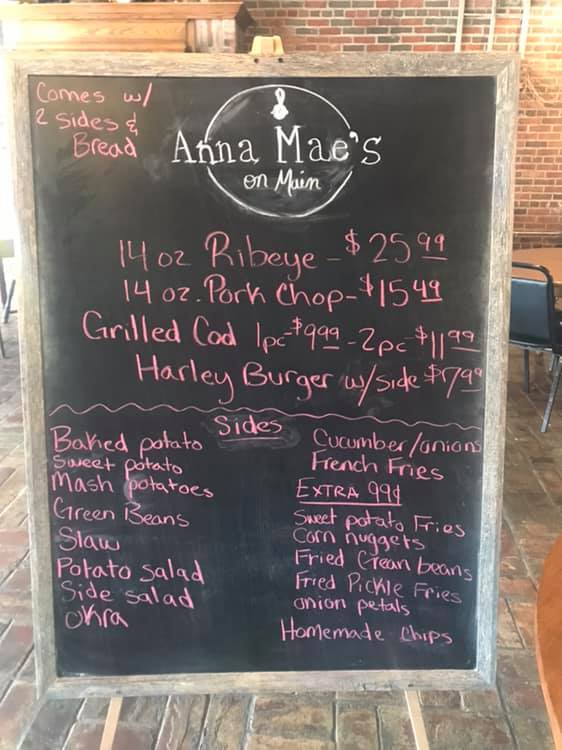 Comes w/
2 sides &
Bread
Anna Mae's
on Main
14 oz Ribeye - $25.99
14 oz. Pork Chop - $15.49
Grilled Cod 1pc - $9.99 - 2pc $11.99
Harley Burger w/side $7.99
Sides
Baked potato
Sweet potato
Mash potatoes
Green Beans
Slaw
Potato salad
Side salad
Okra
Cucumber/onions
French Fries
EXTRA 99¢
Sweet potato Fries
Corn nuggets
Fried Green beans
Fried Pickle Fries
onion petals
Homemade Chips